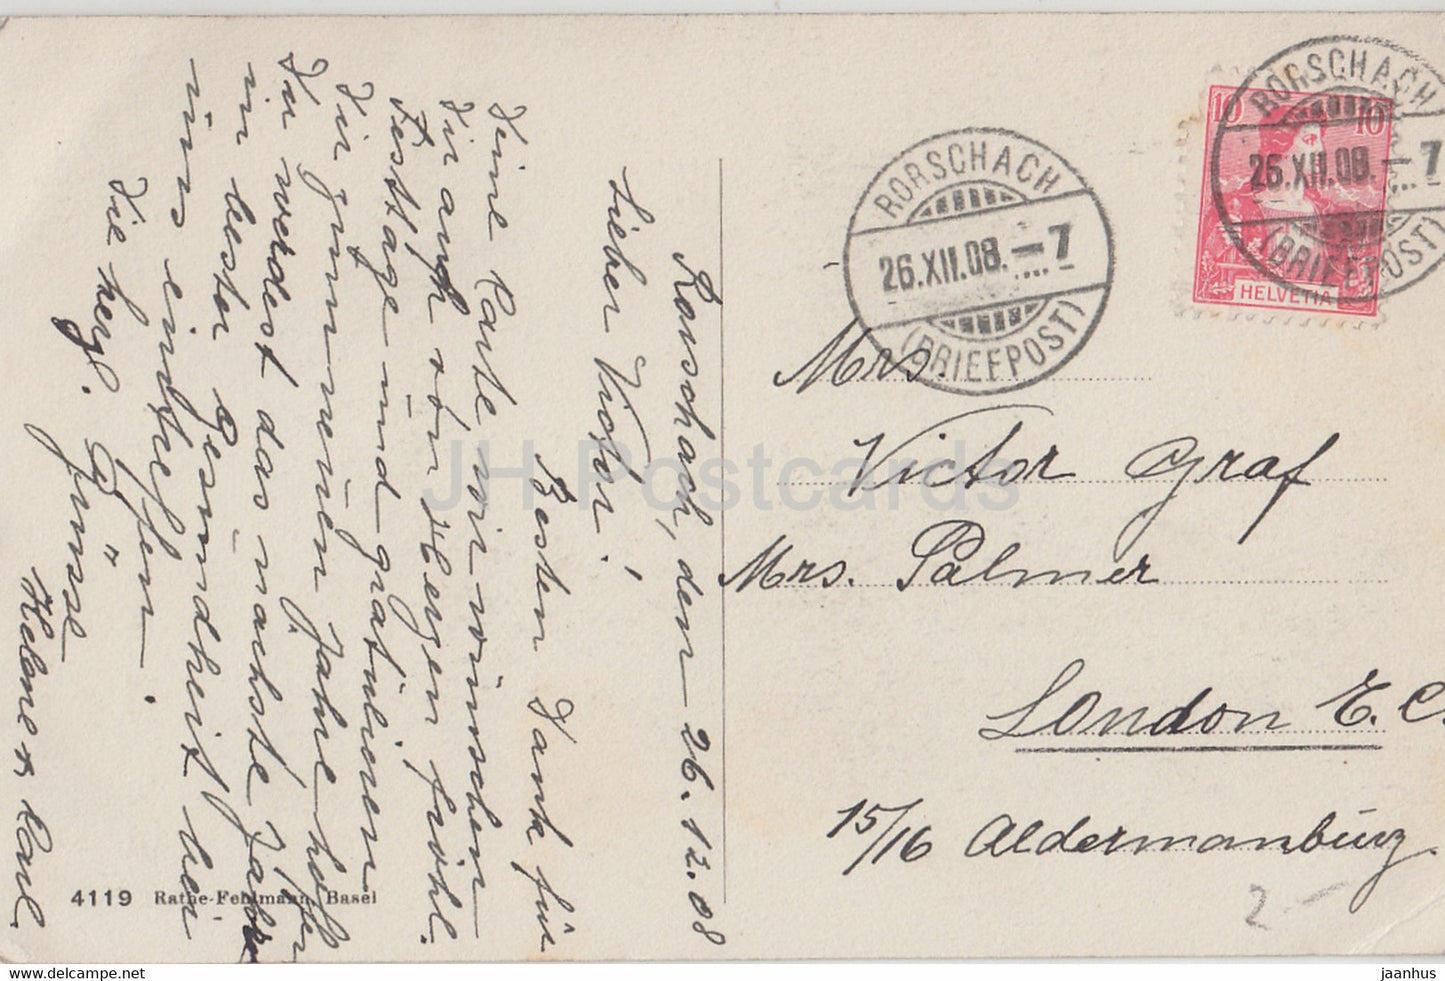 Rorschach, den 26.12.08
Lieber Victor!
Besten Dank für
Deine Karte wir wünschen
Dir auch von Herzen fröhl.
Festtage und gratulieren
Dir zum neuen Jahre hoffen
Du werdest das nächste Jahr
in bester Gesundheit bei
uns eintreffen.
Die herzl. Grüsse
Helene & Karl
4119 Rathe-Fehlmann, Basel
RORSCHACH
26.XII.08.-7
(BRIEFPOST)
RORSCHACH
26.XII.08.-7
(BRIEFPOST)
10 10
HELVETIA
Mrs.
Victor Graf
Mrs. Palmer
London E.C.
15/16 Aldermanbury
2-
JH Postcards
www.hippostcard.com
jaanhus